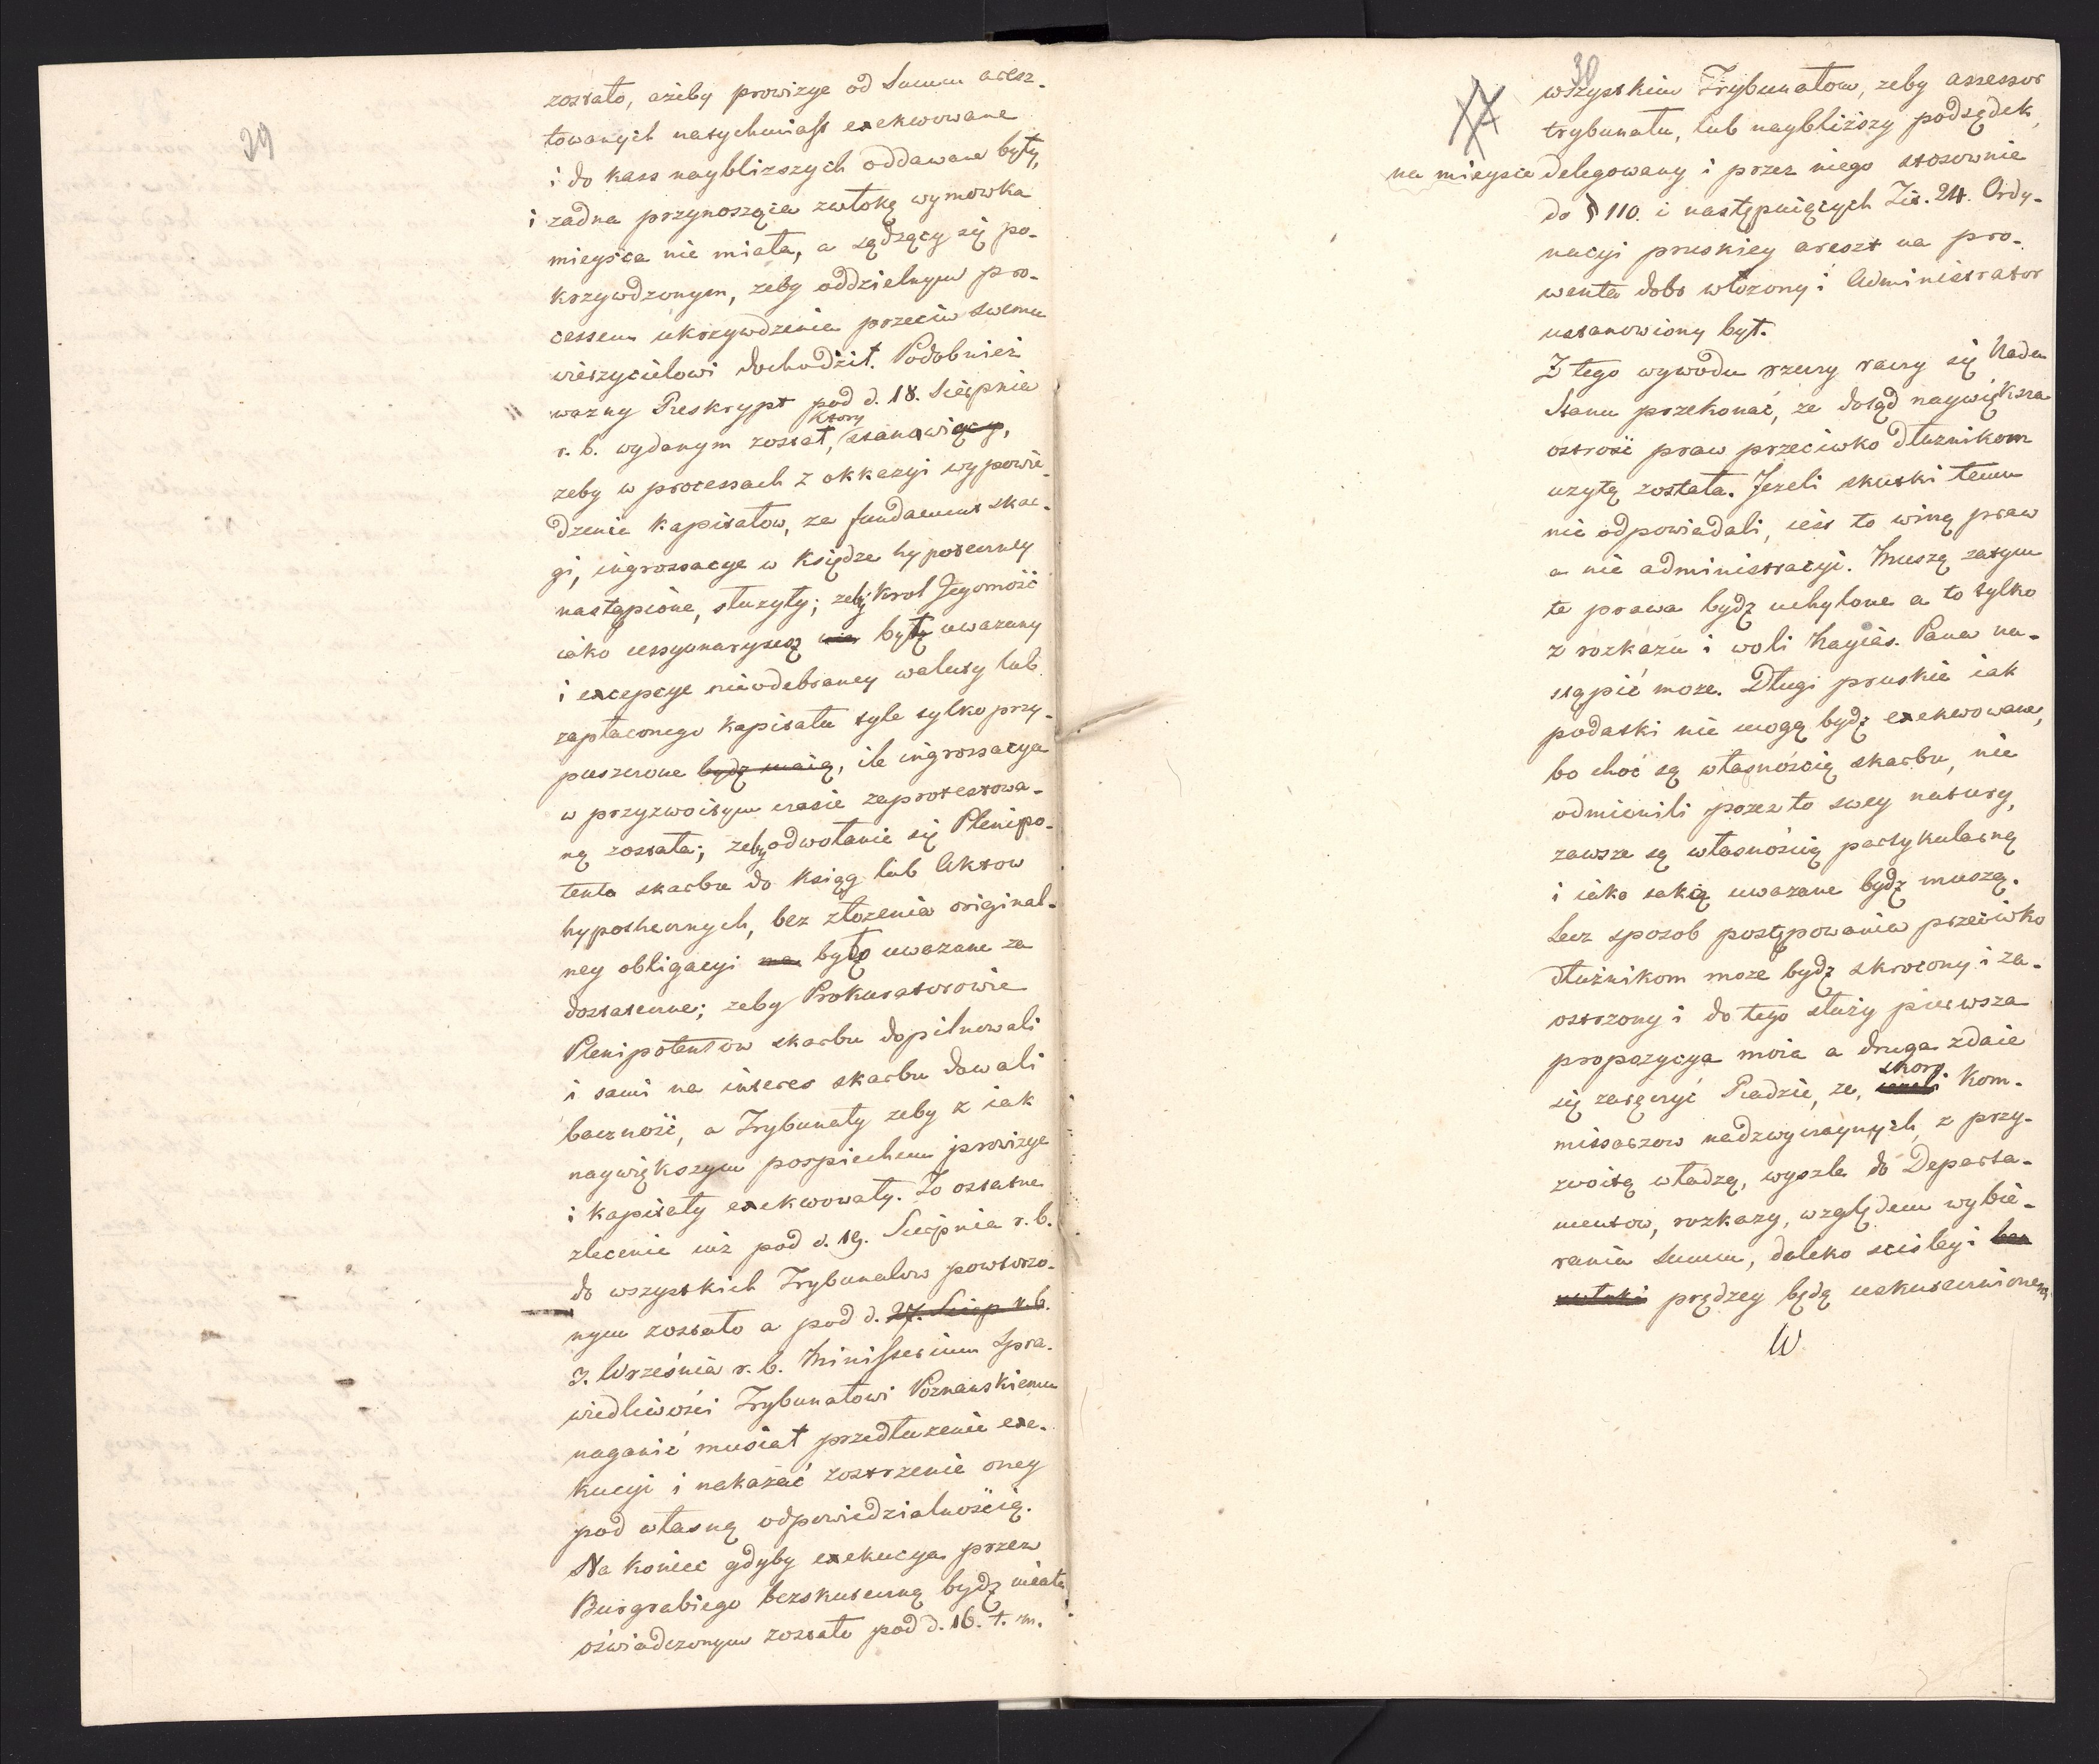 29
zostało, ażeby prowizye od Summ aresz-
towanych natychmiast exekwowane
i do kass naybliższych oddawane były,
i żadna przynosząca zwłokę wymowka
mieysca nie miała, a sądzący się po-
krzywdzonym, zeby oddzielnym pro-
cessem ukrzywdzenia przeciw swemu
wierzycielowi dochodził. Podobnież
wazny Reskrypt pod d. 18. Sierpnia
r. b. wydanym został, ktory stanowiący,
zeby w processach z okkazyi wypowie-
dzenia kapitałow, za fundament skar-
gi, ingrossacye w Księdze hypoteczney
nastąpione, służyły; zeby Krol Jegomość
iako cessyonaryusz był uwazany
i excepcye nieodebraney waluty lub
zapłaconego kapitału tyle tylko przy-
puszczone bydź maią, ile ingrossacya
w przyzwoitym czasie zaprotestowa-
ną została; zeby odwołanie się Plenipo-
tenta skarbu do ksiąg lub Aktow
hypotecznych, bez złozenia original-
ney obligacyi ma było uwazane za
dostateczne; zeby Prokuratorowie
Plenipotentow skarbu dopilnowali
i sami na interes skarbu dawali
baczność, a Trybunały zeby z iak
naywiększym pospiechem prowizye
i kapitały exekwowały. To ostatne
zlecenie iuż pod d. 19. Sierpnia r. b.
do wszystkich Trybunałow powtorzo-
nym zostało a pod d. 27. Sierp r. b.
7. Września r. b. Ministerium Spra-
wiedliwości Trybunałowi Poznanskiemu
naganić musiał przedłuzenie exe-
kucyi i nakazać zostrzenie oney
pod własną odpowiedzialnością.
Na koniec gdyby exekucya przez
Burgrabiego bezskuteczną bydź miała
oświadczonym zostało pod d. 16. t. m.
30
wszystkim Trybunałom, zeby assessor
trybunału, lub naybliższy podsędek,
na mieysce delegowany i przez niego stosownie
do § 110. i następuiących Tit. 24. Ordy-
nacyi pruskiey areszt na pro-
wenta dobr włozony i Administrator
ustanowiony był.
Z tego wywodu rzeczy raczy się Rada
Stanu przekonać, ze dotąd naywiększa
ostrość praw przeciwko dłuznikom
uzytą została. Jezeli skutki temu
nie odpowiadali, iest to winą praw
a nie administracyi. Muszą zatym
te prawa bydź uchylone a to tylko
z rozkazu i woli Nayias. Pana na-
stąpić moze. Długi pruskie iak
podatki nie mogą bydź exekwowane,
bo choć są własnością skarbu, nie
odmienili przez to swey natury,
zawsze są własnością partykularną
i iako takią uwazane bydź muszą.
Lecz sposob postępowania przeciwko
dłużnikom moze bydź skrocony i za-
ostrzony i do tego służy pierwsza
propozycya moia a druga zdaie
się zaręczyć Radzie, ze, skoro iezeli Kom-
missarzow nadzwyczaynych, z przy-
zwoitą władzą, wyszle do Departa-
mentow, rozkazy, względem wybie-
rania Summ, daleko scisley i bez
zwłoki prędzey będą uskutecznionemi
W